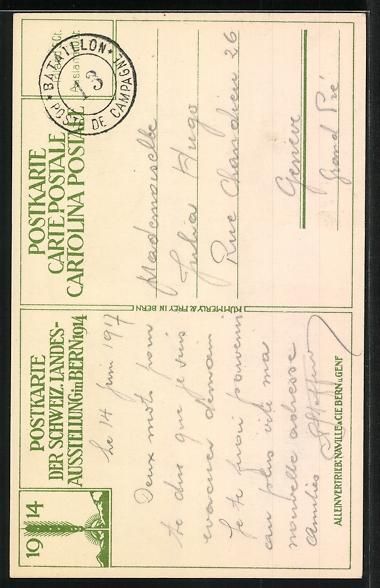 1914
POSTKARTE
DER SCHWEIZ. LANDES-
AUSSTELLUNG in BERN 1914
le 14 Juin 1917
Deux mots pour
te dire que je suis
evacuer demain
Je te ferai parvenir
au plus vite ma
nouvelle adresse
Amitiés
ALLEINVERTRIEB: NAVILLE & CIE BERN U. GENF
KÜMMERLY & FREY IN BERN
POSTKARTE
CARTE POSTALE
CARTOLINA POSTALE
BATAILLON
13
POSTE DE CAMPAGNE
Ausland
Mademoiselle
Julia Hugo
Rue Chandieu 26
Genève
Grand Pré